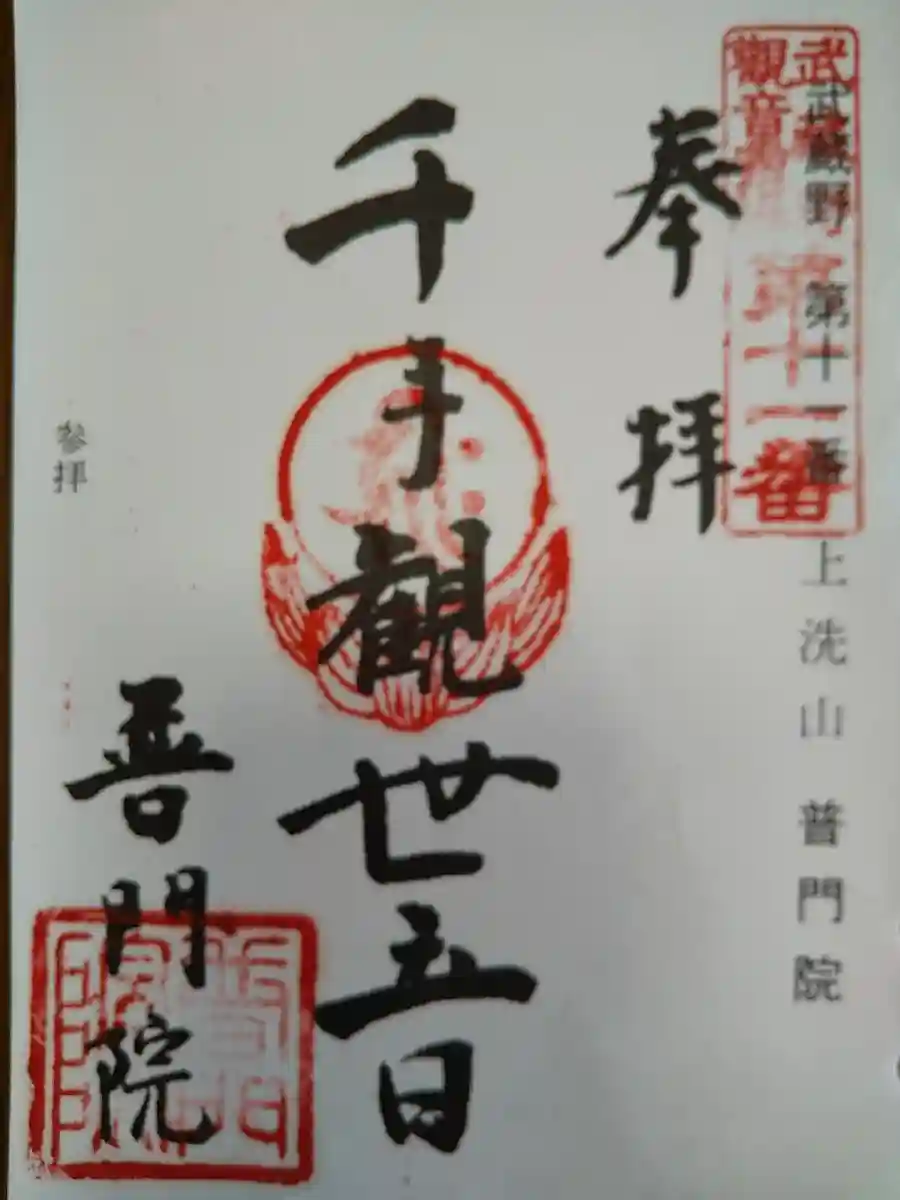 武蔵野 第十一番 上洗山 普門院
武
觀音
第十一番
奉拝
千手観世音
普門院
参拝